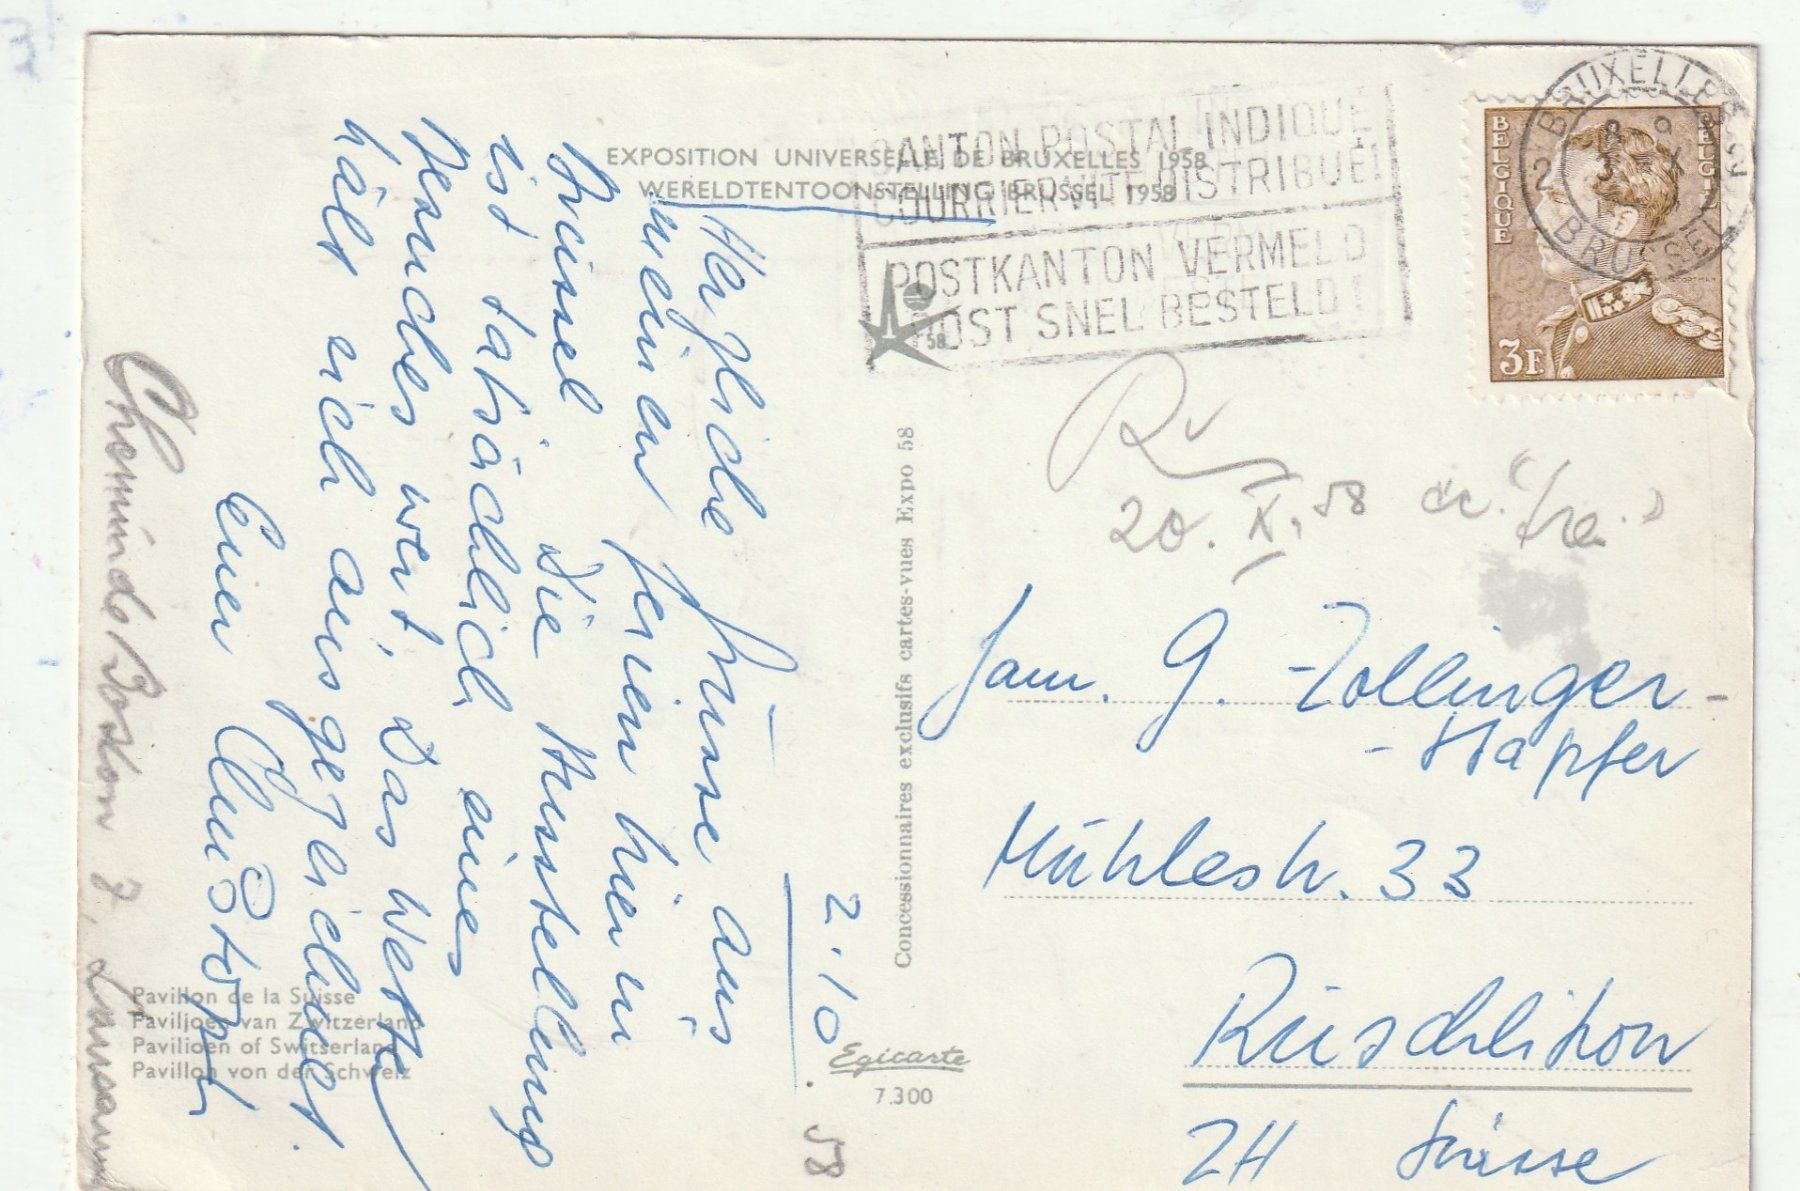 EXPOSITION UNIVERSELLE DE BRUXELLES 1958
WERELDTENTOONSTELLING BRUSSEL 1958
CANTON POSTAL INDIQUÉ
COURRIER VITE DISTRIBUÉ!
POSTKANTON VERMELD
POST SNEL BESTELD!
58
BRUXELLES
BRUSSEL
BELGIQUE
BELGIE
3F.
20. X. 58
2.10.
58
Herzliche Grüsse aus
meinen Ferien hier in
Brüssel. Die Ausstellung
ist tatsächlich eines
Besuches wert, das Wetter
hält sich ausgezeichnet.
Euer
Chemin de Boston 7, Lausanne
Concessionnaires exclusifs cartes-vues Expo 58
Fam. G. Zollinger-
-Hapfer
Mühlestr. 33
Rüschlikon
ZH Suisse
Pavillon de la Suisse
Paviljoen van Zwitzerland
Pavilioen of Switserland
Pavillon von der Schweiz
Egicarte
7.300